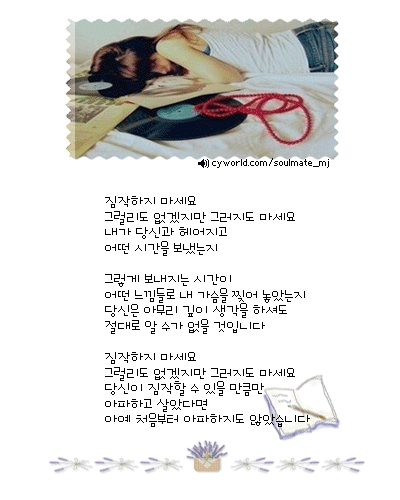 cyworld.com/soulmate_mj
짐작하지 마세요
그럴리도 없겠지만 그러지도 마세요
내가 당신과 헤어지고
어떤 시간을 보냈는지
그렇게 보내지는 시간이
어떤 느낌들로 내 가슴을 찢어 놓았는지
당신은 아무리 깊이 생각을 하셔도
절대로 알 수가 없을 것입니다
짐작하지 마세요
그럴리도 없겠지만 그러지도 마세요
당신이 짐작할 수 있을 만큼만
아파하고 살았다면
아예 처음부터 아파하지도 않았습니다